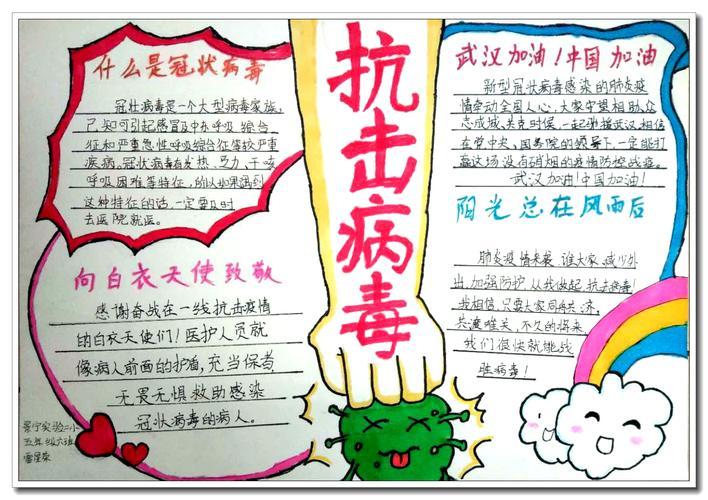 什么是冠状病毒
冠壮病毒是一个大型病毒家族,
己知可引起感冒及中东呼吸综合
征和严重急性呼吸综合征等较严重
疾病。冠状病毒有发热、乃力、干咳
呼吸困难等特征,所以如果遇到
这种特征的话,一定要及时
去医院就医。
向白衣天使致敬
感谢奋战在一线抗击疫情
的白衣天使们!医护人员就
像病人前面的护盾,充当保者
无畏无惧救助感染
冠状病毒的病人。
景宁实验二小
五年级六班
雷星
抗击病毒
武汉加油!中国加油
新型冠状病毒感染的肺炎疫
情牵动全国人心,大家守望相助、众
志成城、共克时候,一起驰援武汉,相信
在党中央、国务院的领导下,一定能打
赢这场没有硝烟的疫情防控战疫。
武汉加油!中国加油!
阳光总在风雨后
肺炎疫情来袭,谁大家,减少外
出,加强防护,从我做起,抗击病毒!
我相信,只要大家同舟共济,
共渡难关,不久的将来,
我们很快就能战
胜病毒!